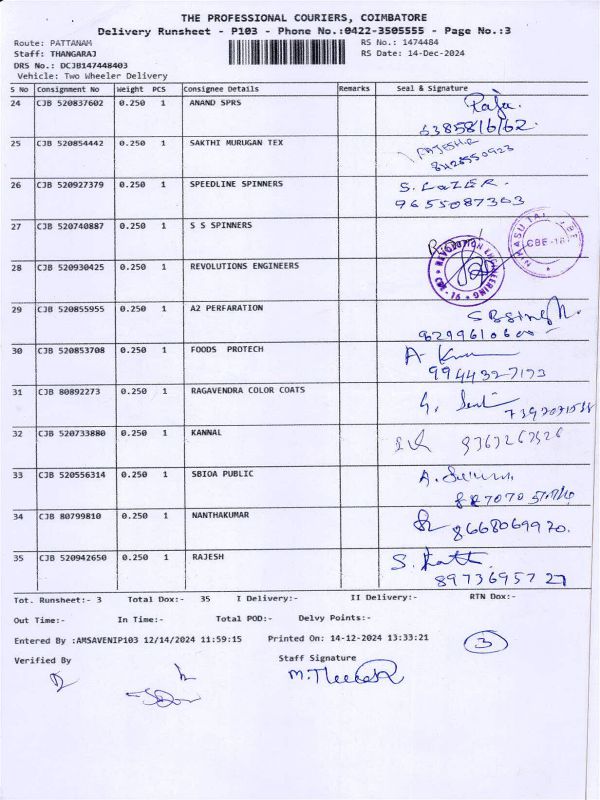 THE PROFESSIONAL COURIERS, COIMBATORE
Delivery Runsheet - P103 - Phone No.:0422-3505555 - Page No.:3
Route: PATTANAM RS No.: 1474484
Staff: THANGARAJ RS Date: 14-Dec-2024
DRS No.: DCJB147448403
Vehicle: Two Wheeler Delivery
S No Consignment No Weight PCS Consignee Details Remarks Seal & Signature
24 CJB 520837602 0.250 1 ANAND SPRS Raja.
25 CJB 520854442 0.250 1 SAKTHI MURUGAN TEX
26 CJB 520927379 0.250 1 SPEEDLINE SPINNERS S. LaZER.
9655087303
27 CJB 520740887 0.250 1 S S SPINNERS
CBE-16
28 CJB 520930425 0.250 1 REVOLUTIONS ENGINEERS
REVOLUTION ENGINEERING
29 CJB 520855955 0.250 1 A2 PERFARATION
30 CJB 520853708 0.250 1 FOODS PROTECH
31 CJB 80892273 0.250 1 RAGAVENDRA COLOR COATS
32 CJB 520733880 0.250 1 KANNAL
33 CJB 520556314 0.250 1 SBIOA PUBLIC
34 CJB 80799810 0.250 1 NANTHAKUMAR 8668069970.
35 CJB 520942650 0.250 1 RAJESH
8973695727
Tot. Runsheet:- 3 Total Dox:- 35 I Delivery:- II Delivery:- RTN Dox:-
Out Time:- In Time:- Total POD:- Delvy Points:-
Entered By :AMSAVENIP103 12/14/2024 11:59:15 Printed On: 14-12-2024 13:33:21 3
Verified By Staff Signature